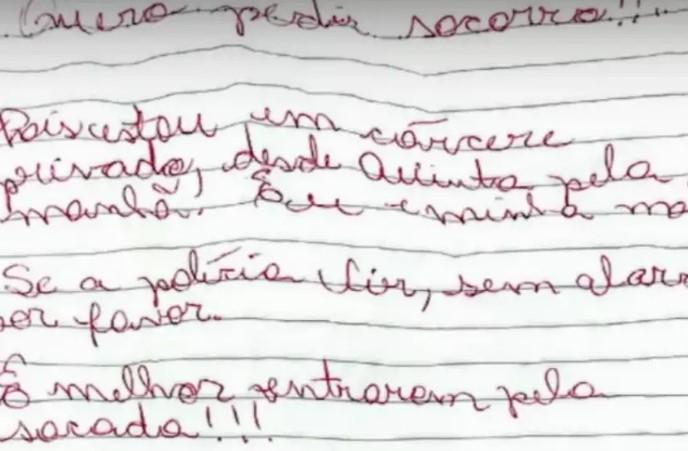 Quero pedir socorro!!!..
Pois estou em cárcere
privado, desde Quinta pela
manhã! Eu e minha
Se a polícia vir, sem
favor.
É melhor entrarem pela
sacada!!!